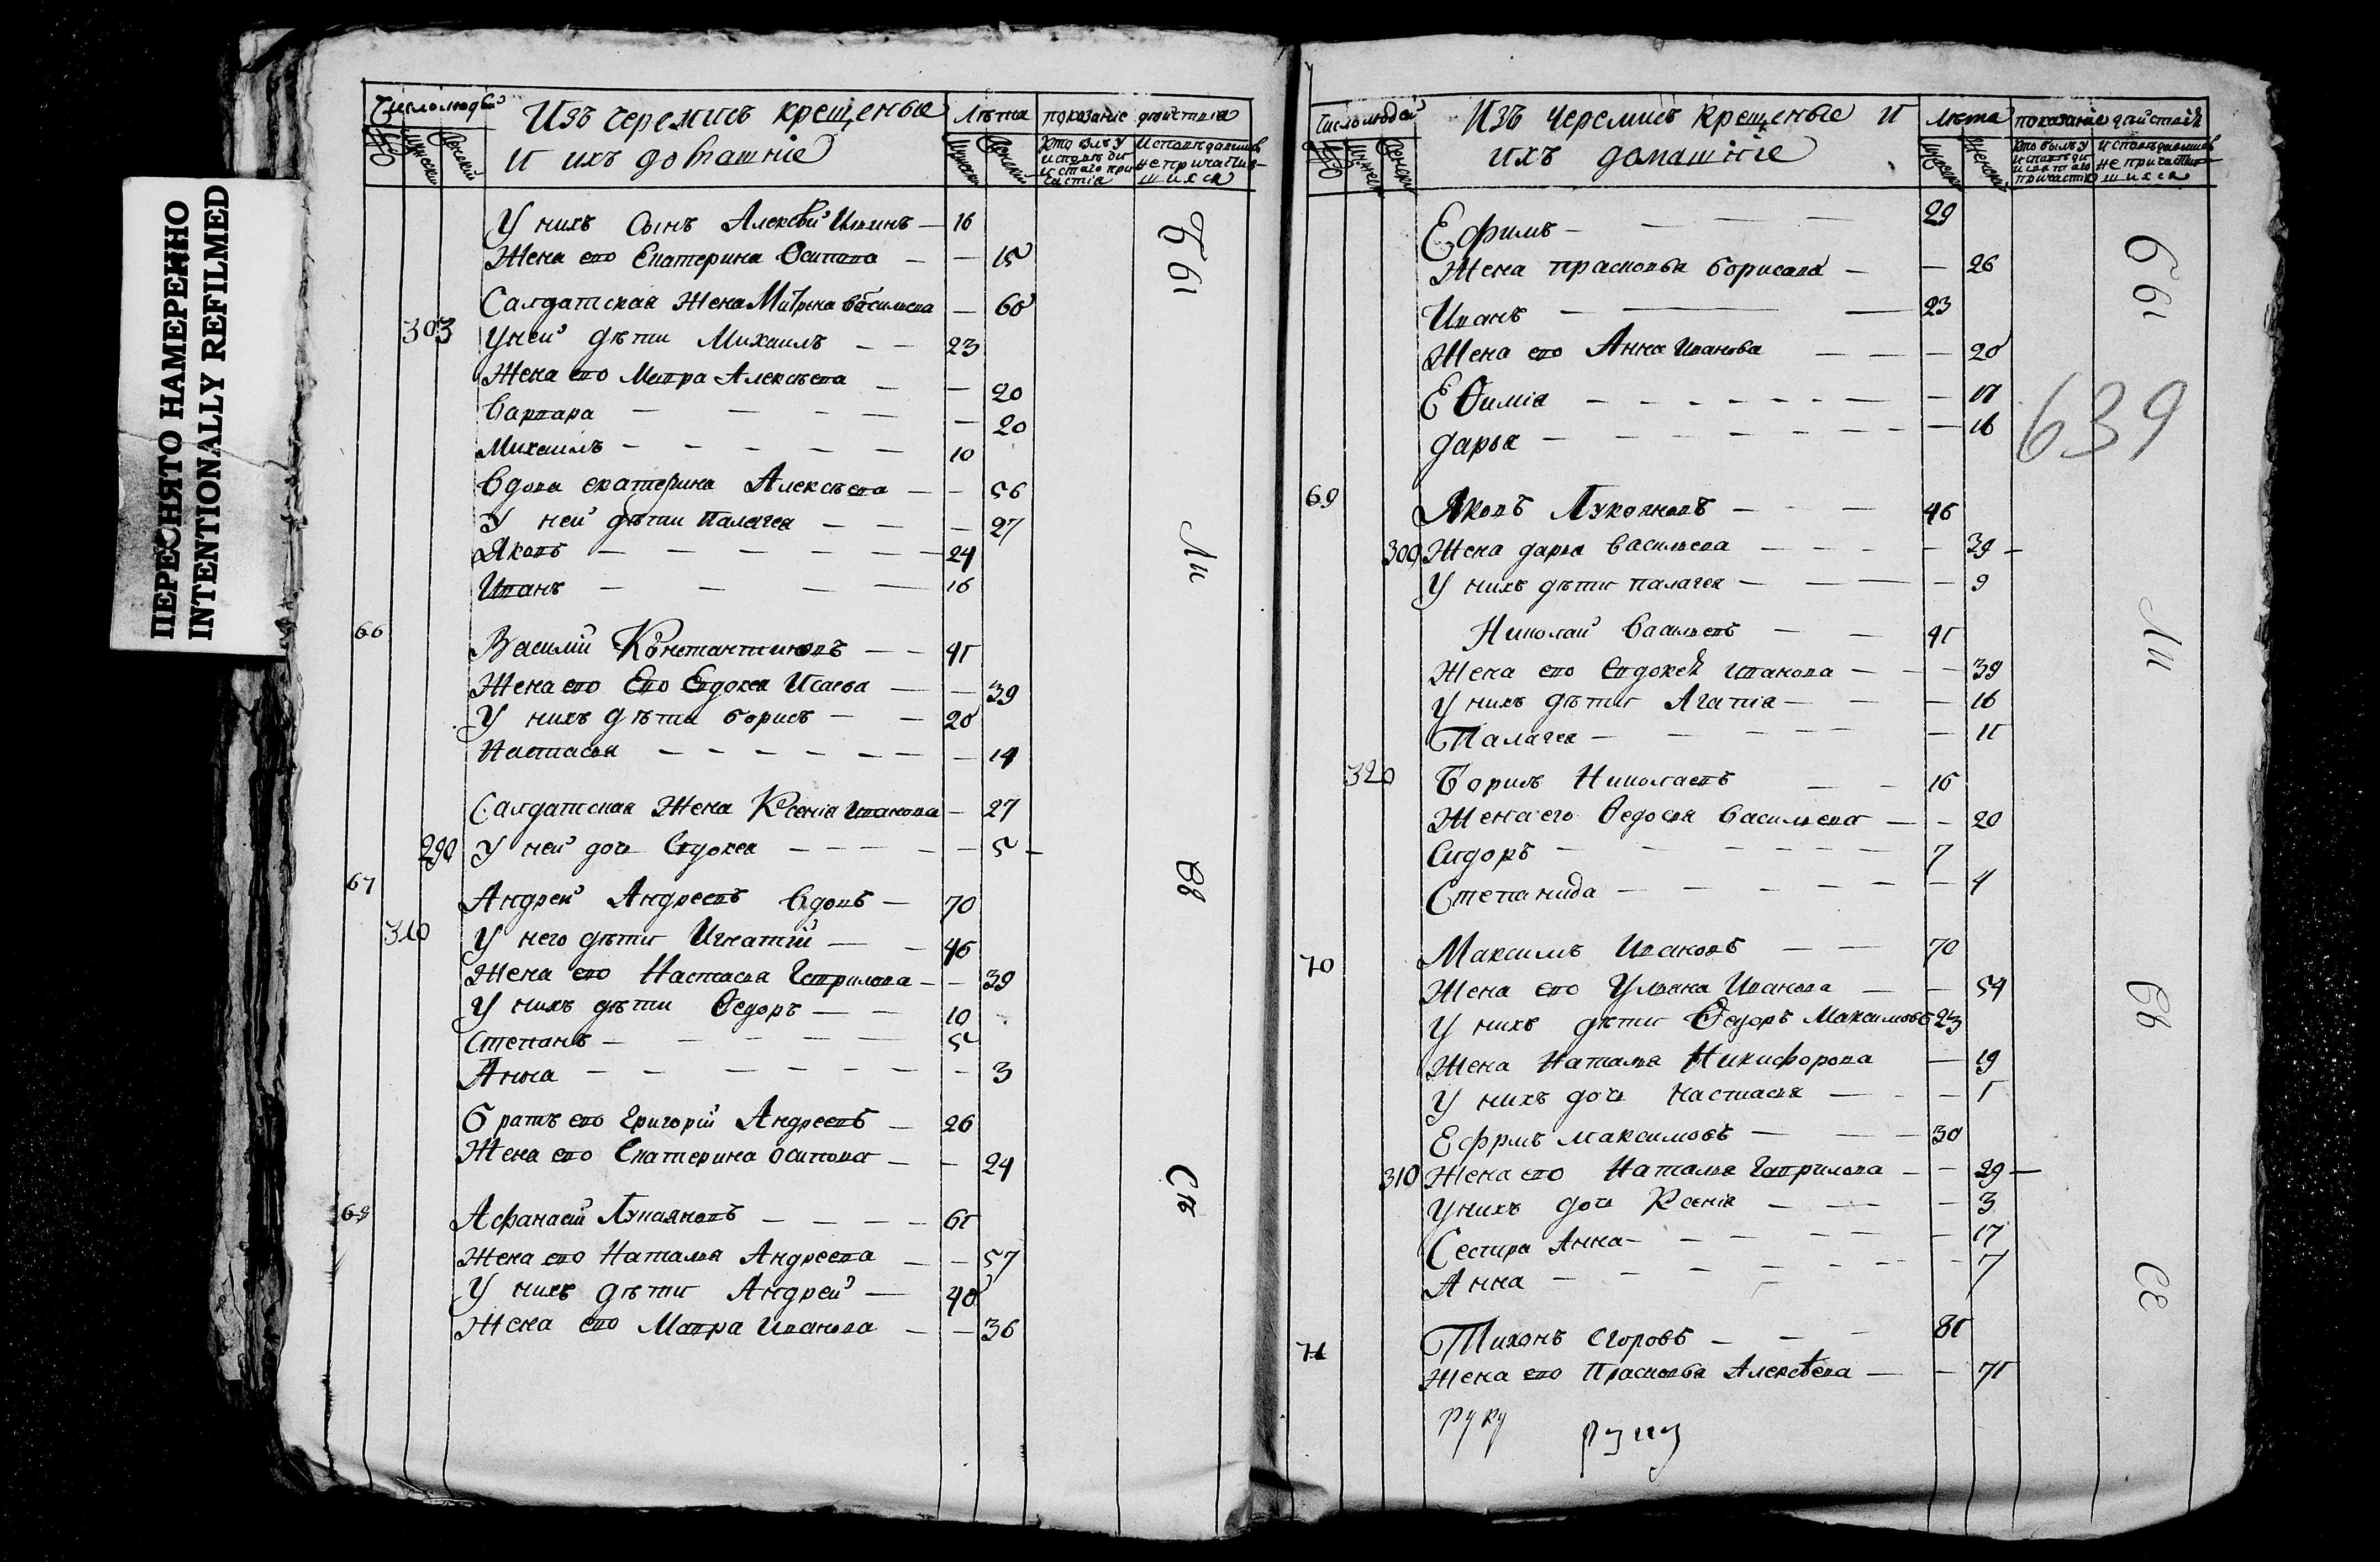 ПЕРЕСНЯТО НАМЕРЕННО
INTENTIONALLY REFILMED
Число людей
Изъ черемисъ крещеные
и ихъ доматніе
Лѣта
показаніе действія
Мужеска
Женскій
Кто былъ у исповеди и стаго причастія
Исповедовались не причастившихся
У нихъ Сынъ Алексѣй Ивинъ — 16
Жена его Екатерина Осипова — — 15
Салдатская Жена Матрена Васильева — 60
303 У ней дѣти Михаилъ — — 23
Жена его Мавра Алексѣева — — 20
Варвара — — — — — 20
Михаилъ — — — — — 10
Вдова екатерина Алексѣева — — 56
У ней дѣти Палагея — — — 27
Яковъ — — — — — — 24
Иванъ — — — — 16
66 Василій Константиновъ — — 41
Жена его Его Евдокея Исаева — — 39
У нихъ дѣти Борисъ — — 20
Настасья — — — — — — — 14
Салдатская Жена Ксенія Иванова — 27
290 У ней дочь Евдокея — — — — — 5 —
67 Андрей Андреевъ Вдовъ — 70
310 У него дѣти Игнатій — — 46
Жена его Настасья Гаврилова — — 39
У нихъ дѣти Ѳедоръ — — 10
Степанъ — — — — — 5
Анна — — — — — — — 3
Братъ его Григорій Андреевъ — 26
Жена его Екатерина Осипова — — 24
68 Афанасій Лукояновъ — — — — 61
Жена его Наталья Андреева — — 57
У нихъ дѣти Андрей — 40
Жена его Мавра Иванова — — 36
Бы
Ли
Вв
Съ
Число людей
Изъ черемисъ крещеные и
ихъ домашніе
Лѣта
показаніе действія
Мужеска
Женскій
Кто былъ у исповеди и святаго причастія
Исповедовались не причастившихся
Ефимъ — — — — 29
Жена Прасковья Борисова — — 26
Иванъ — — — 23
Жена его Анна Иванова — — — 20
Еѳимія — — — — — — — — 17
Дарья — — — — — — — — 16
639
69 Яковъ Лукояновъ — — — 46
300 Жена Дарья Васильева — — — — — 39 —
У нихъ дѣти Палагея — — — — 9
Николай Васильевъ — — 41
Жена его Евдокея Иванова — — — 39
У нихъ дѣти Агапія — — — 16
Палагея — — — — — — 11
320 Борисъ Николаевъ — — 16
Жена его Ѳедосья Васильева — — 20
Сидоръ — — — — — — — 7
Степанида — — — — — — 4
70 Максимъ Ивановъ — — 70
Жена его Ульяна Иванова — — 54
У нихъ дѣти Ѳедоръ Максимовъ 23
Жена Наталья Никифорова — 19
У нихъ дочь Настасья — — — 1
Ефрмъ Максимовъ — — — 30
310 Жена его Наталья Гаврилова — — 29 —
У нихъ дочь Ксенія — — — 3
Сестра Анна — — — — — — 17
Анна — — — — — — — 7
71 Тихонъ Егоровъ — — — 81
Жена его Прасковья Алексѣева — — 71
руку
руку
Бы
Ли
Вв
СЕ